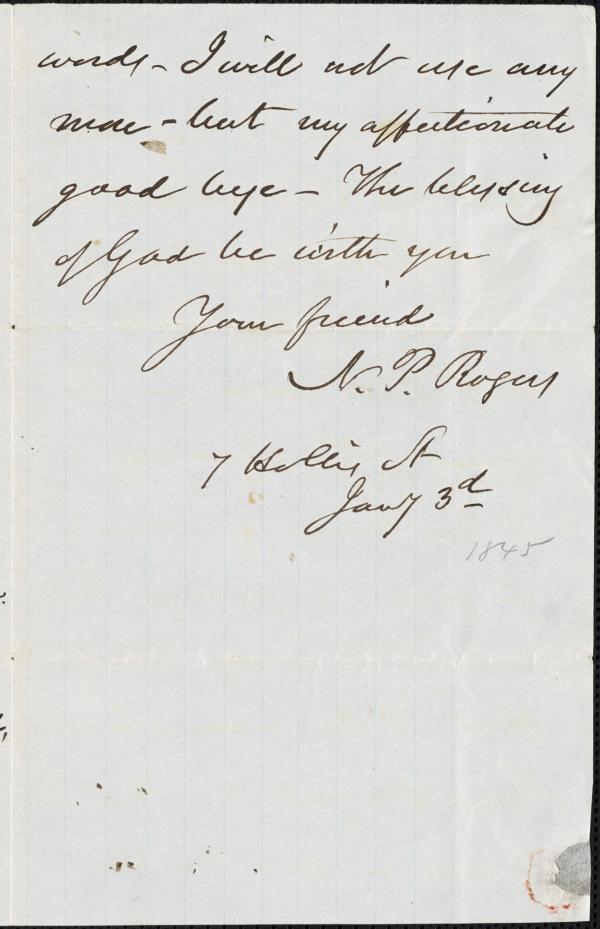 words – I will not use any
more – but my affectionate
good bye – The blessing
of God be with you
Your friend
N. P. Rogers
7 Hollis St
Jany 3d
1845